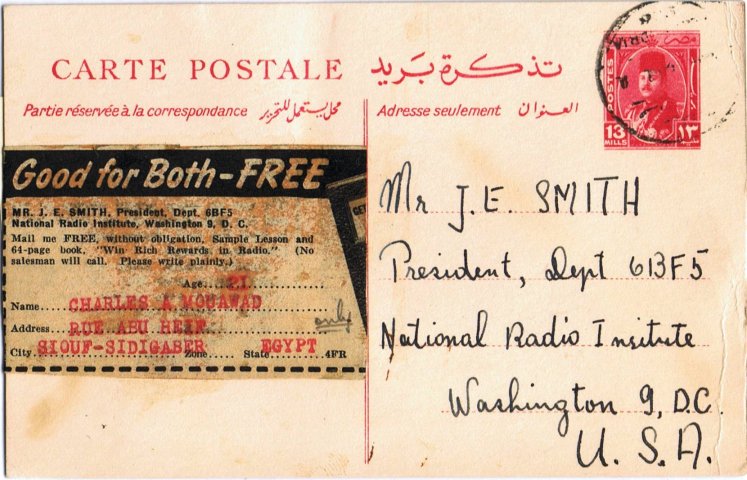 CARTE POSTALE تذكرة بريد
Partie réservée à la correspondance محل يستعمل للتحرير
Adresse seulement العنوان
POSTES
13 MILLS ١٣
Good for Both-FREE
MR. J. E. SMITH, President, Dept. 6BF5
National Radio Institute, Washington 9, D. C.
Mail me FREE, without obligation, Sample Lesson and
64-page book, "Win Rich Rewards in Radio." (No
salesman will call. Please write plainly.)
Age... 21
Name... CHARLES A MOUAWAD
only
Address... RUE ABU HEIF
City SIOUF-SIDIGABER Zone... State EGYPT 4FR
Mr J. E. SMITH
President, Dept 6BF5
National Radio Institute
Washington 9, D.C.
U. S. A.